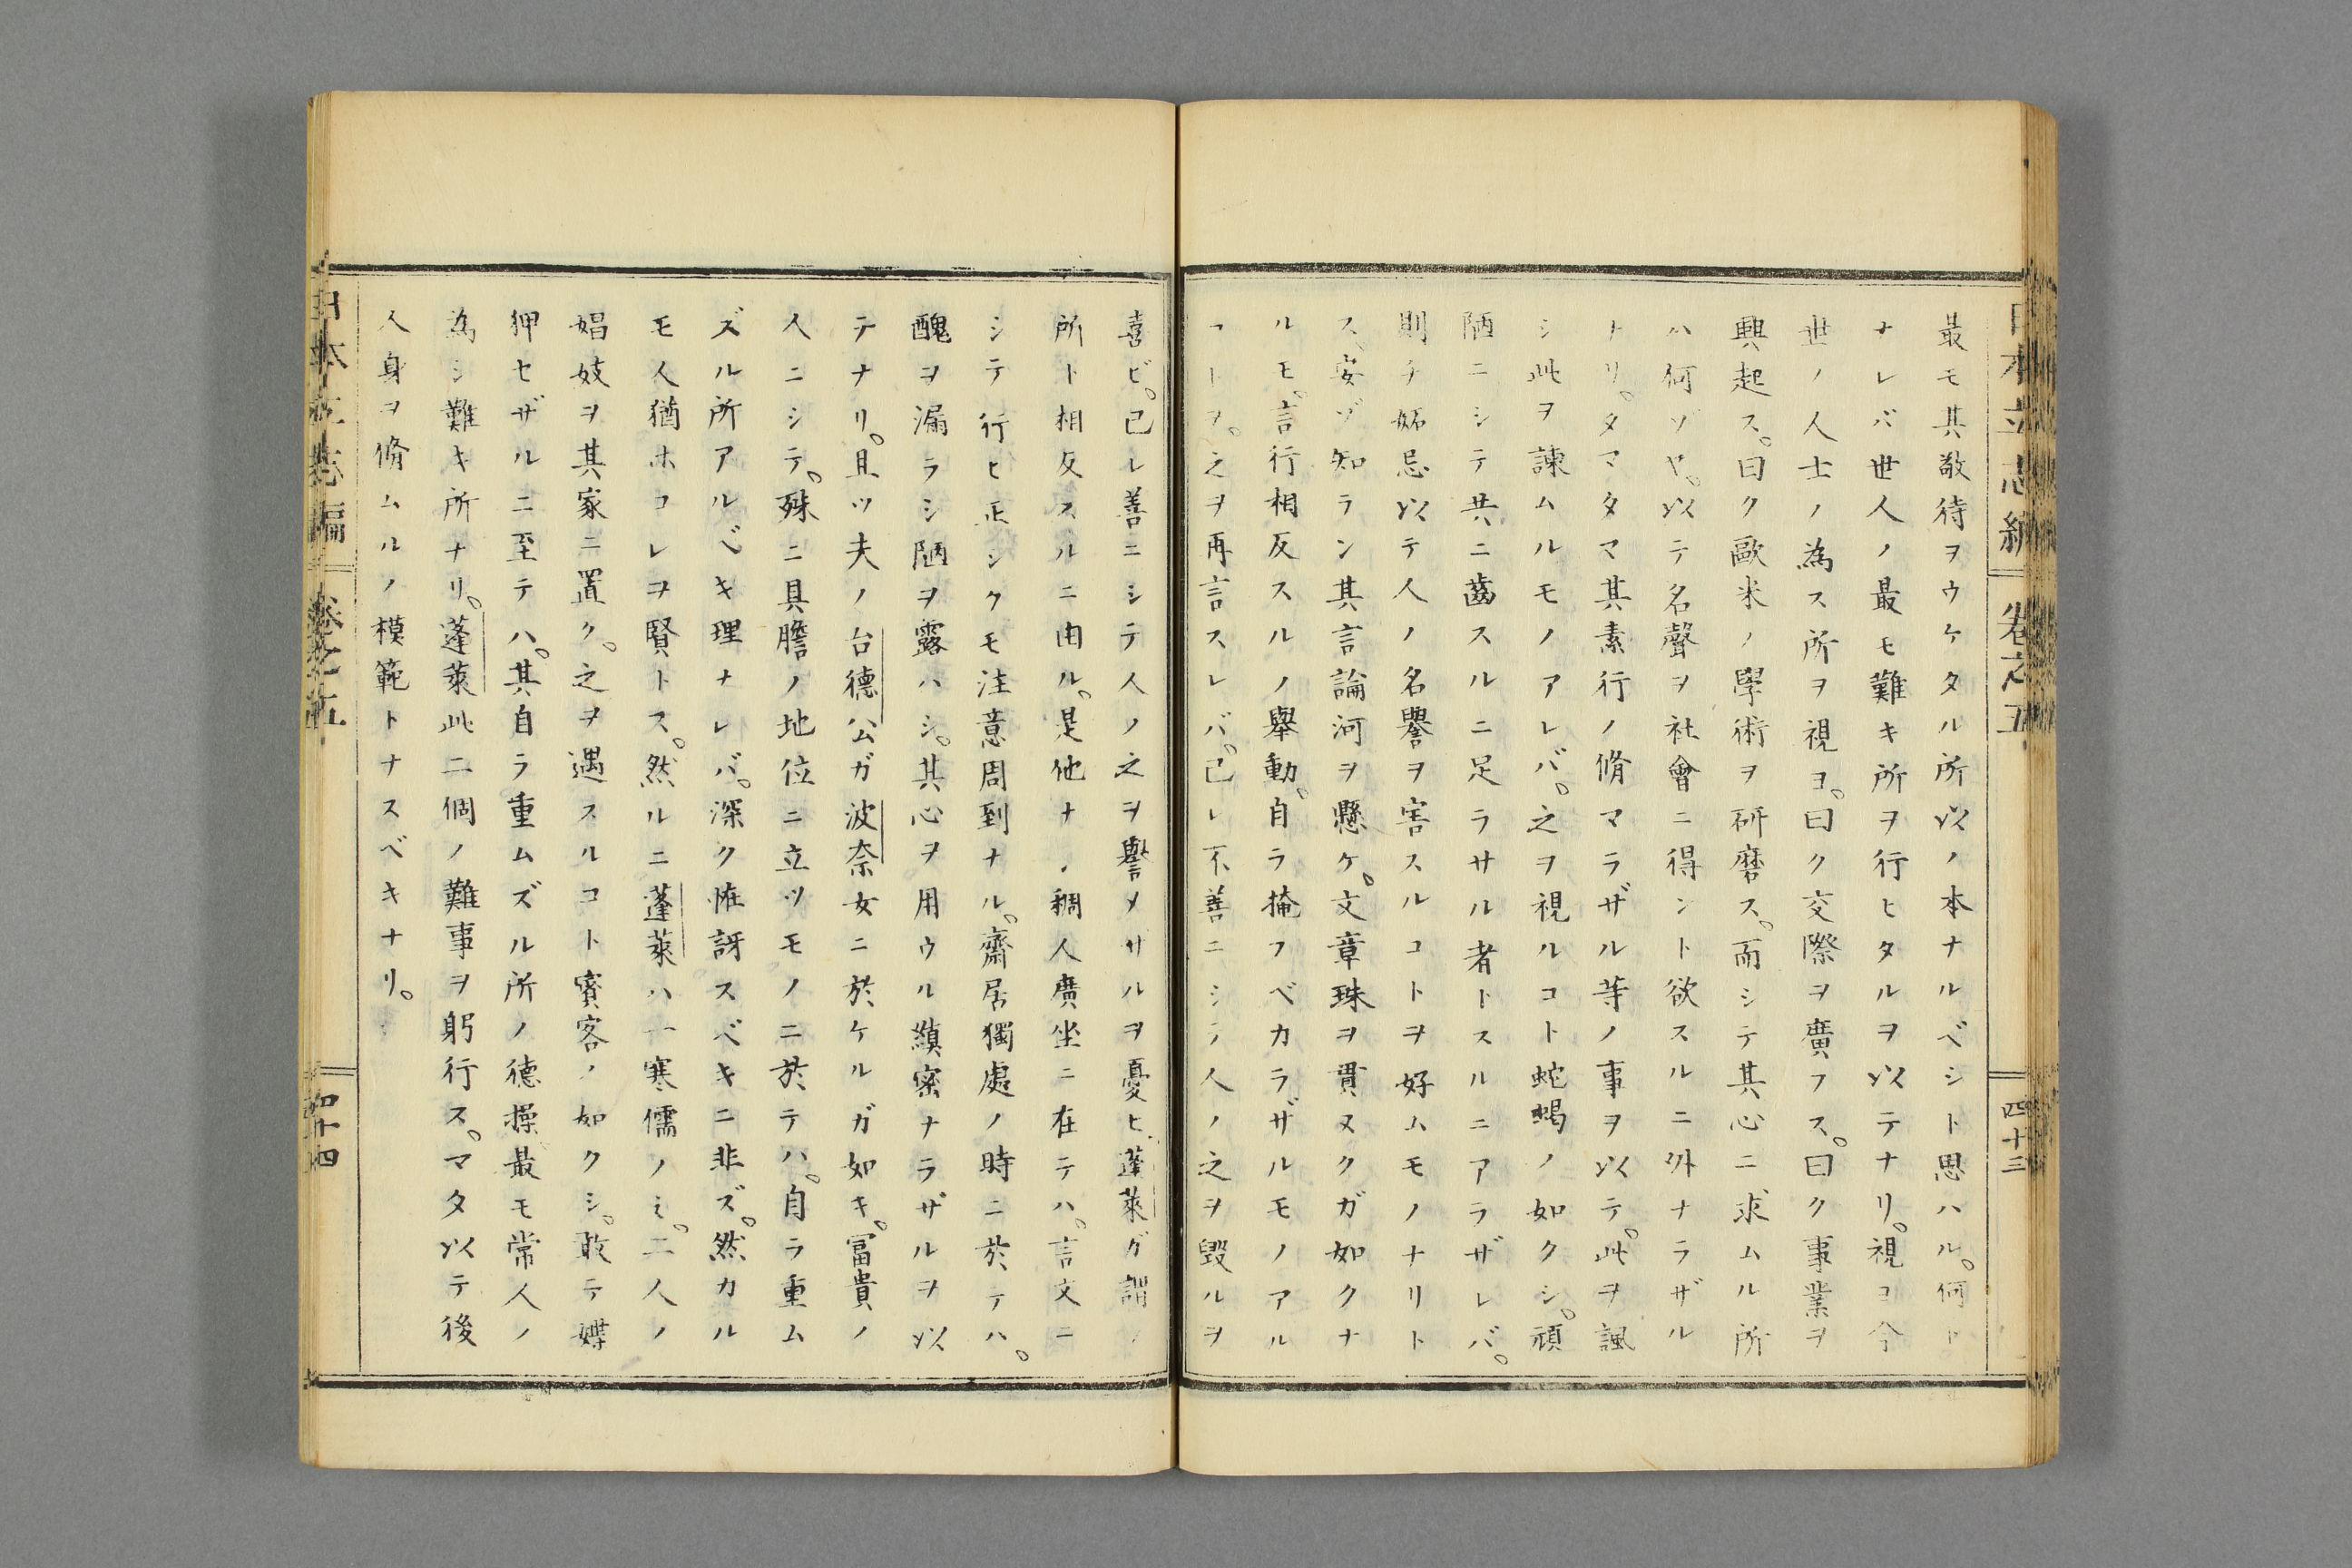 日本立志編 卷之五 四十三
最モ其敬待ヲウケタル所以ノ本ナルベシト思ハル。何ト
ナレバ世人ノ最モ難キ所ヲ行ヒタルヲ以テナリ。視ヨ今
世ノ人士ノ為ス所ヲ視ヨ。曰ク交際ヲ廣フス。曰ク事業ヲ
興起ス。曰ク歐米ノ學術ヲ研磨ス。而シテ其心ニ求ムル所
ハ何ゾヤ。以テ名聲ヲ社會ニ得ント欲スルニ外ナラザル
ナリ。タマタマ其素行ノ脩マラザル等ノ事ヲ以テ。此ヲ諷
シ此ヲ諫ムルモノアレバ。之ヲ視ルコト蛇蝎ノ如クシ。頑
陋ニシテ共ニ齒スルニ足ラサル者トスルニアラザレバ。
則チ妬忌以テ人ノ名譽ヲ害スルコトヲ好ムモノナリト
ス。安ゾ知ラン其言論河ヲ懸ケ。文章珠ヲ貫ヌクガ如クナ
ルモ。言行相反スルノ舉動。自ラ掩フベカラザルモノアル
コトヲ。之ヲ再言スレバ。己レ不善ニシテ人ノ之ヲ毀ルヲ
喜ビ。己レ善ニシテ人ノ之ヲ譽メサルヲ憂ヒ。蓬萊ガ謂ノ
所ト相反スルニ由ル。是他ナシ稠人廣坐ニ在テハ。言文ニ
シテ行ヒ正シクモ注意周到ナル。齋居獨處ノ時ニ於テハ。
醜ヲ漏ラシ陋ヲ露ハシ。其心ヲ用ウル縝密ナラザルヲ以
テナリ。且ツ夫ノ台德公ガ波奈女ニ於ケルガ如キ。冨貴ノ
人ニシテ。殊ニ具膽ノ地位ニ立ツモノニ於テハ。自ラ重ム
ズル所アルベキ理ナレバ。深ク怪訝スベキニ非ズ。然カル
モ人猶ホコレヲ賢トス。然ルニ蓬萊ハ一寒儒ノミ。二人ノ
娼妓ヲ其家ニ置ク。之ヲ遇スルコト賓客ノ如クシ。敢テ媟
狎セザルニ至テハ。其自ラ重ムズル所ノ德操最モ常人ノ
為シ難キ所ナリ。蓬萊此二個ノ難事ヲ躬行ス。マタ以テ後
人身ヲ脩ムルノ模範トナスベキナリ。
日本立志編 卷之五 四十四